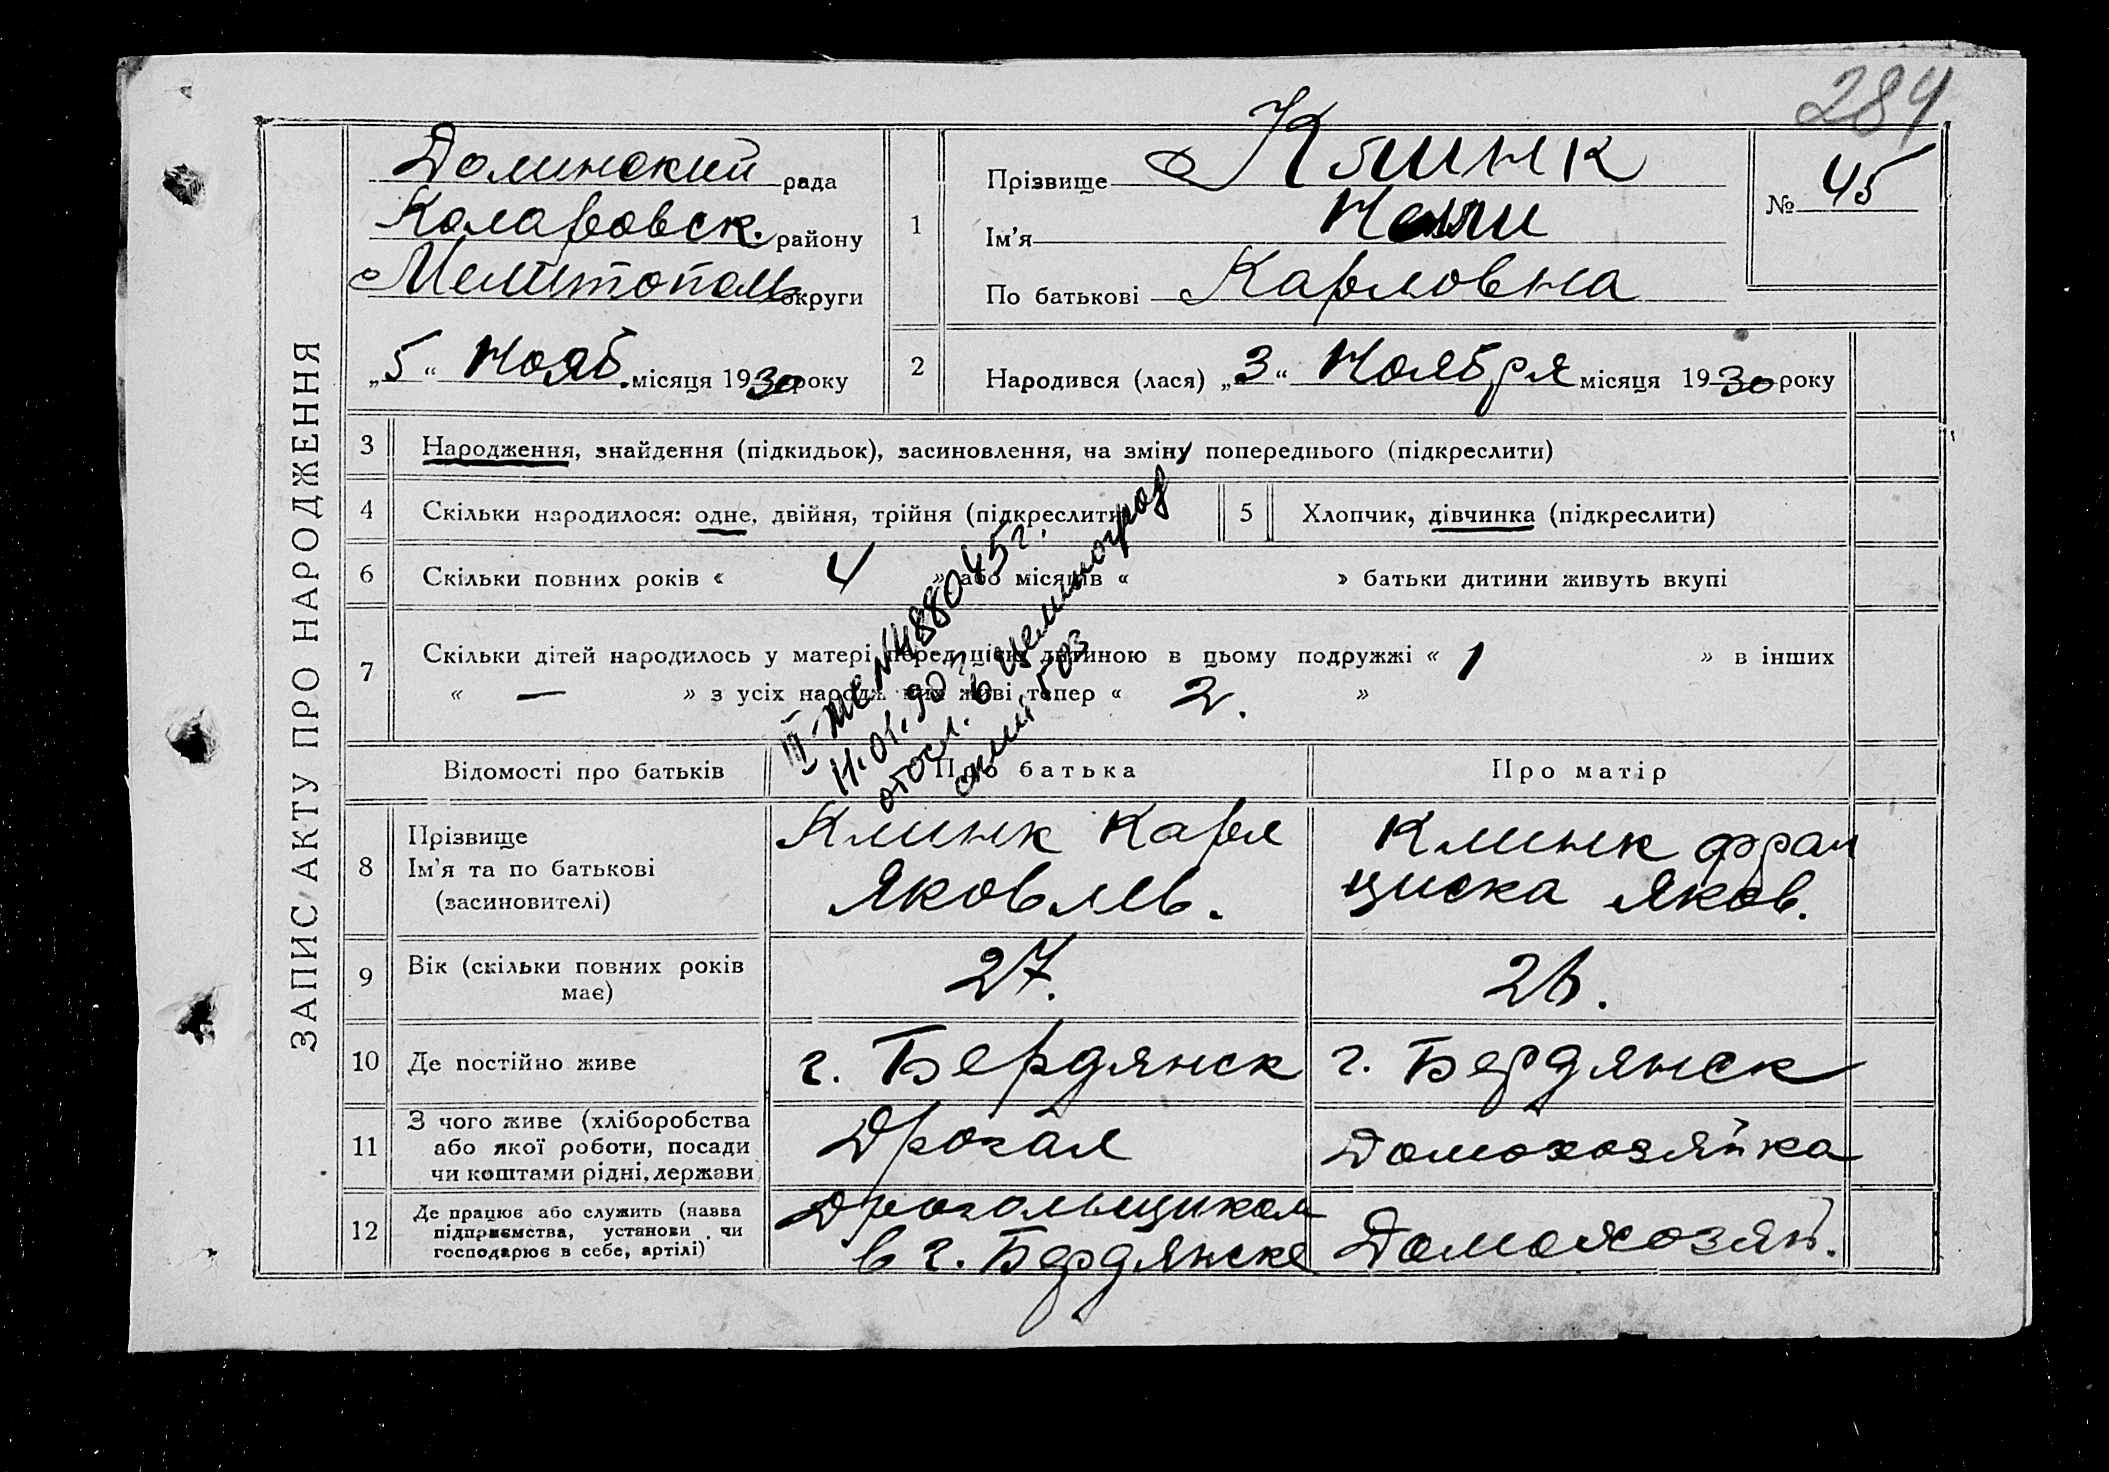 284
ЗАПИС АКТУ ПРО НАРОДЖЕННЯ
Долинский рада
Коларовск. району
Мелитополь округи
„5“ Нояб. місяця 1930 року
1
Прізвище Клинк
Ім'я
По батькові Карловна
№ 45
2
Народився (лася) „3“ Ноября місяця 1930 року
3 Народження, знайдення (підкидьок), засиновлення, на зміну попереднього (підкреслити)
4 Скільки народилося: одне, двійня, трійня (підкреслити)
5 Хлопчик, дівчинка (підкреслити)
6 Скільки повних років « 4 » або місяців « » батьки дитини живуть вкупі
7 Скільки дітей народилось у матері перед цією дитиною в цьому подружжі « 1 » в інших
« — » з усіх народжених живі тепер « 2. »
11.01.90г
отосл. в Целиноград
Відомості про батьків
Про батька
Про матір
8
Прізвище
Ім'я та по батькові
(засиновителі)
Клинк Карл
Яковлев.
Клинк Фран
циска Яков.
9
Вік (скільки повних років
має)
27.
26.
10 Де постійно живе
г. Бердянск
г. Бердянск
11
З чого живе (хліборобства
або якої роботи, посади
чи коштами рідні, держави
Дрогал
Домохозяйка
12
Де працює або служить (назва
підприємства, установи, чи
господарює в себе, артілі)
Дрогальщиком
в г. Бердянске
Домохозяй.